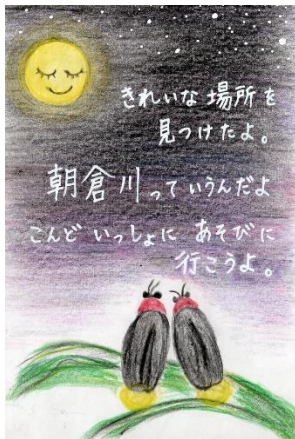 きれいな場所を
見つけたよ。
朝倉川っていうんだよ
こんど いっしょに あそびに
行こうよ。